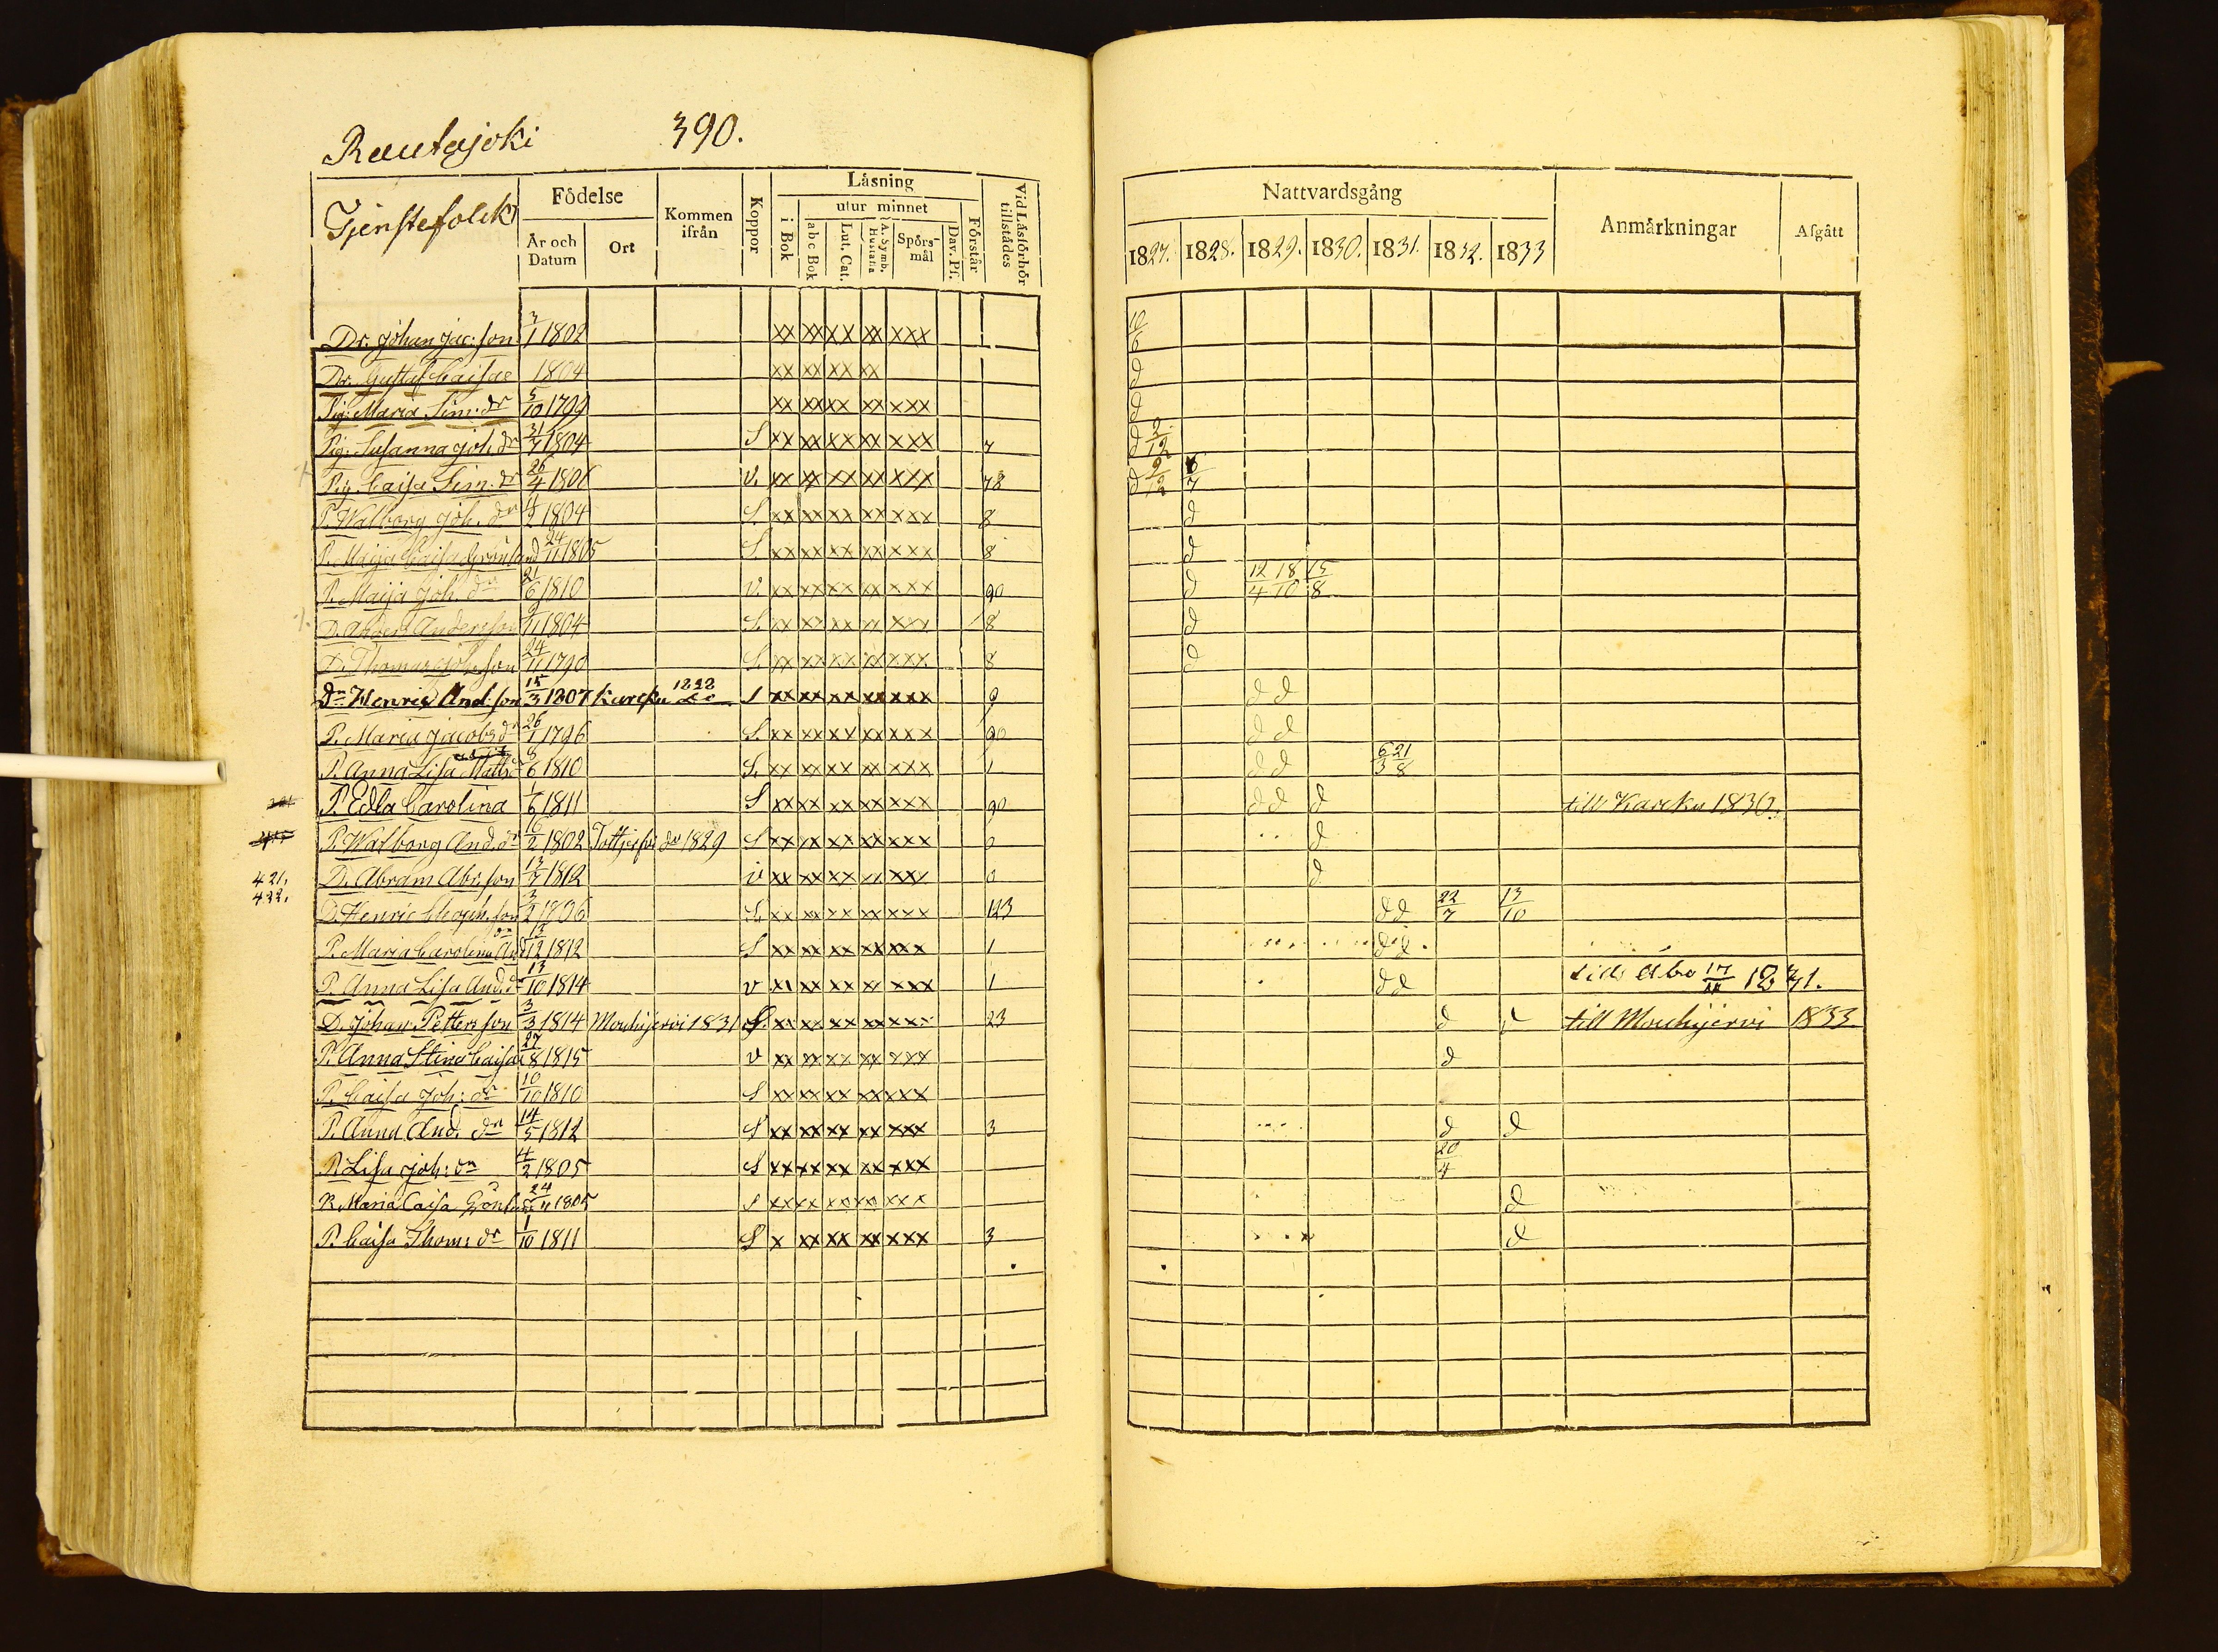 Rautajoki 390.
Tjenstefolck
Födelse
Kommen ifrån
Koppor
Läsning
utur minnet
Vid Läsförhör tillstådes
År och Datum
Ort
i Bok
abc Bok
Lut. Cat.
A. Symb. Hustafla
Spörsmål
Dav. Ps.
Förstår
Nattvardsgång
Anmärkningar
Afgått
1827. 1828. 1829. 1830. 1831. 1832. 1833
Dr. Johan Jac: son 3/1 1802 xx xx xx xx xxx 10/6
Dr. Gustaf Caisae 1804 xx xx xx xx d
Pig: Maria Sim: dr 5/10 1799 xx xx xx xx xxx d
Pig: Susanna Joh. dr 31/7 1804 S xx xx xx xx xxx 7 d 2/12
Pig. Caisa Sim. dr 26/4 1806 v. xx xx xx xx xxx 78 d 2/12 6/7
P. Walborg Joh. dr 4/2 1804 S. xx xx xx xx xxx 8 d
P. Maija Caisa Grönland 24/11 1805 S. xx xx xx xx xxx 8 d
P. Maija Joh. dr 21/6 1810 v. xx xx xx xx xxx 90 d 12/4 18/10 15/8
D. Anders Andersson 9/11 1804 S. xx xx xx xx xxx 8 d
D. Thomas Joh. son 24/11 1790 S. xx xx xx xx xxx 8 d
Dr Henric And: son 15/3 1807 Karcku 1828 S xx xx xx xx xxx 9 d d
P. Maria Jacobs dr 26/1 1796 S. xx xx xx xx xxx 90 d d
P. Anna Lisa Matts dr 8/6 1810 S. xx xx xx xx xxx 1 d d 6/3 21/8
P. Edla Carolina 1/6 1811 S xx xx xx xx xxx 90 d d d till Karcku 1830.
P. Walborg And. dr 16/2 1802 dr 1829 S xx xx xx xx xxx 0 d
421. D. Abram Abr. son 13/7 1812 v xx xx xx xx xxx 0 d
422. D. Henric son 3/2 1806 S. xx xx xx xx xxx 123 d d 22/7 13/10
P. Maria Carolina And dr 13/12 1812 S xx xx xx xx xxx 1 d d
P. Anna Lisa And. dr 13/10 1814 v xx xx xx xx xxx 1 d d till Åbo 17/11 1831.
D. Johan Petters son 3/3 1814 Mouhijervi 1831 S. xx xx xx xx xxx 23 d d till Mouhijervi 1833
P. Anna Stina Caisae 27/8 1815 v xx xx xx xx xxx d
P. Caisa Joh: dr 10/10 1810 S xx xx xx xx xxx
P. Anna And. dr 14/5 1812 S xx xx xx xx xxx 3 d d
P. Lisa Joh: dr 4/2 1805 S xx xx xx xx xxx 20/4
P. Maria Caisa Grönlund 24/11 1805 S xx xx xx xx xxx d
P. Caisa Thom: dr 1/10 1811 S x xx xx xx xxx 3 d